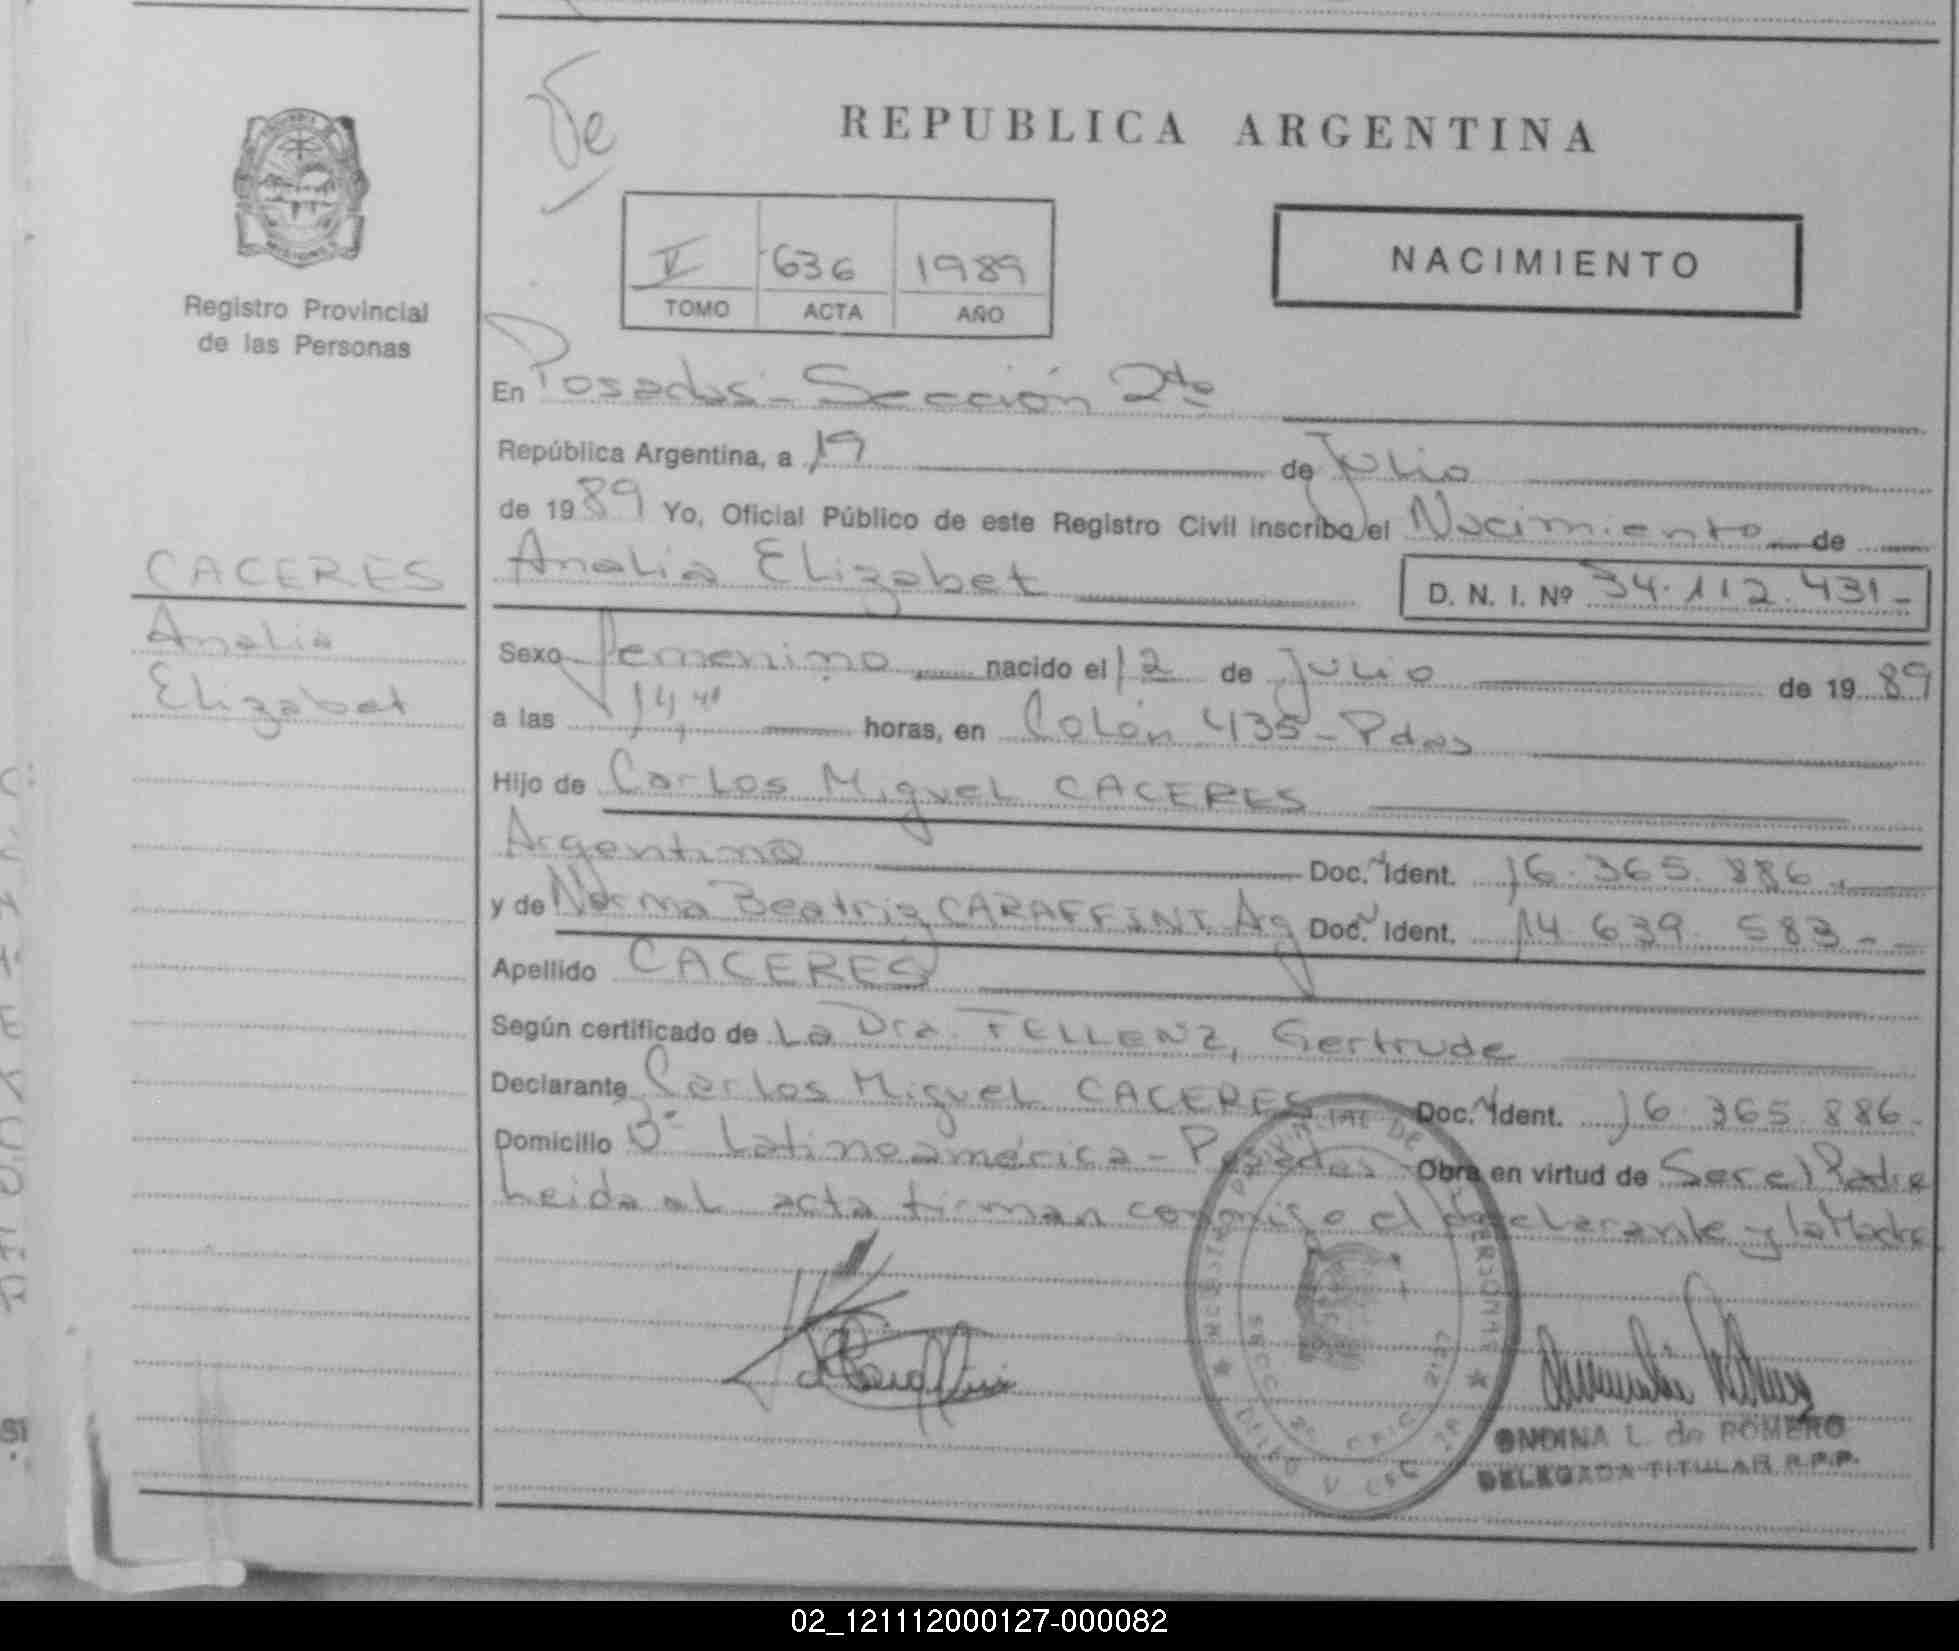 REPUBLICA ARGENTINA
V 636 1989
TOMO ACTA AÑO
NACIMIENTO
Registro Provincial
de las Personas
CACERES
Analia
Elizabet
En Posadas - Sección 2da
República Argentina, a 19 de Julio
de 1989 Yo, Oficial Público de este Registro Civil inscribo el Nacimiento de
Analia Elizabet D. N. I. Nº 34.112.431-
Sexo femenino nacido el 12 de Julio de 1989
a las 14,40 horas, en Colón 435 - Pdas
Hijo de Carlos Miguel CACERES
Argentino Doc. Ident. 16.365.886.
y de Norma Beatriz CARAFFINI Ag Doc. Ident. 14.639.583--
Apellido CACERES
Según certificado de La Dra. FELLENZ, Gertrude
Declarante Carlos Miguel CACERES Doc. Ident. 16.365.886-
Domicilio Bº Latinoamérica - Posadas Obra en virtud de Ser el Padre
Leida el acta firman conmigo el declarante y la Madre
ONDINA L. de ROMERO
DELEGADA TITULAR R.P.P.
02_121112000127-000082